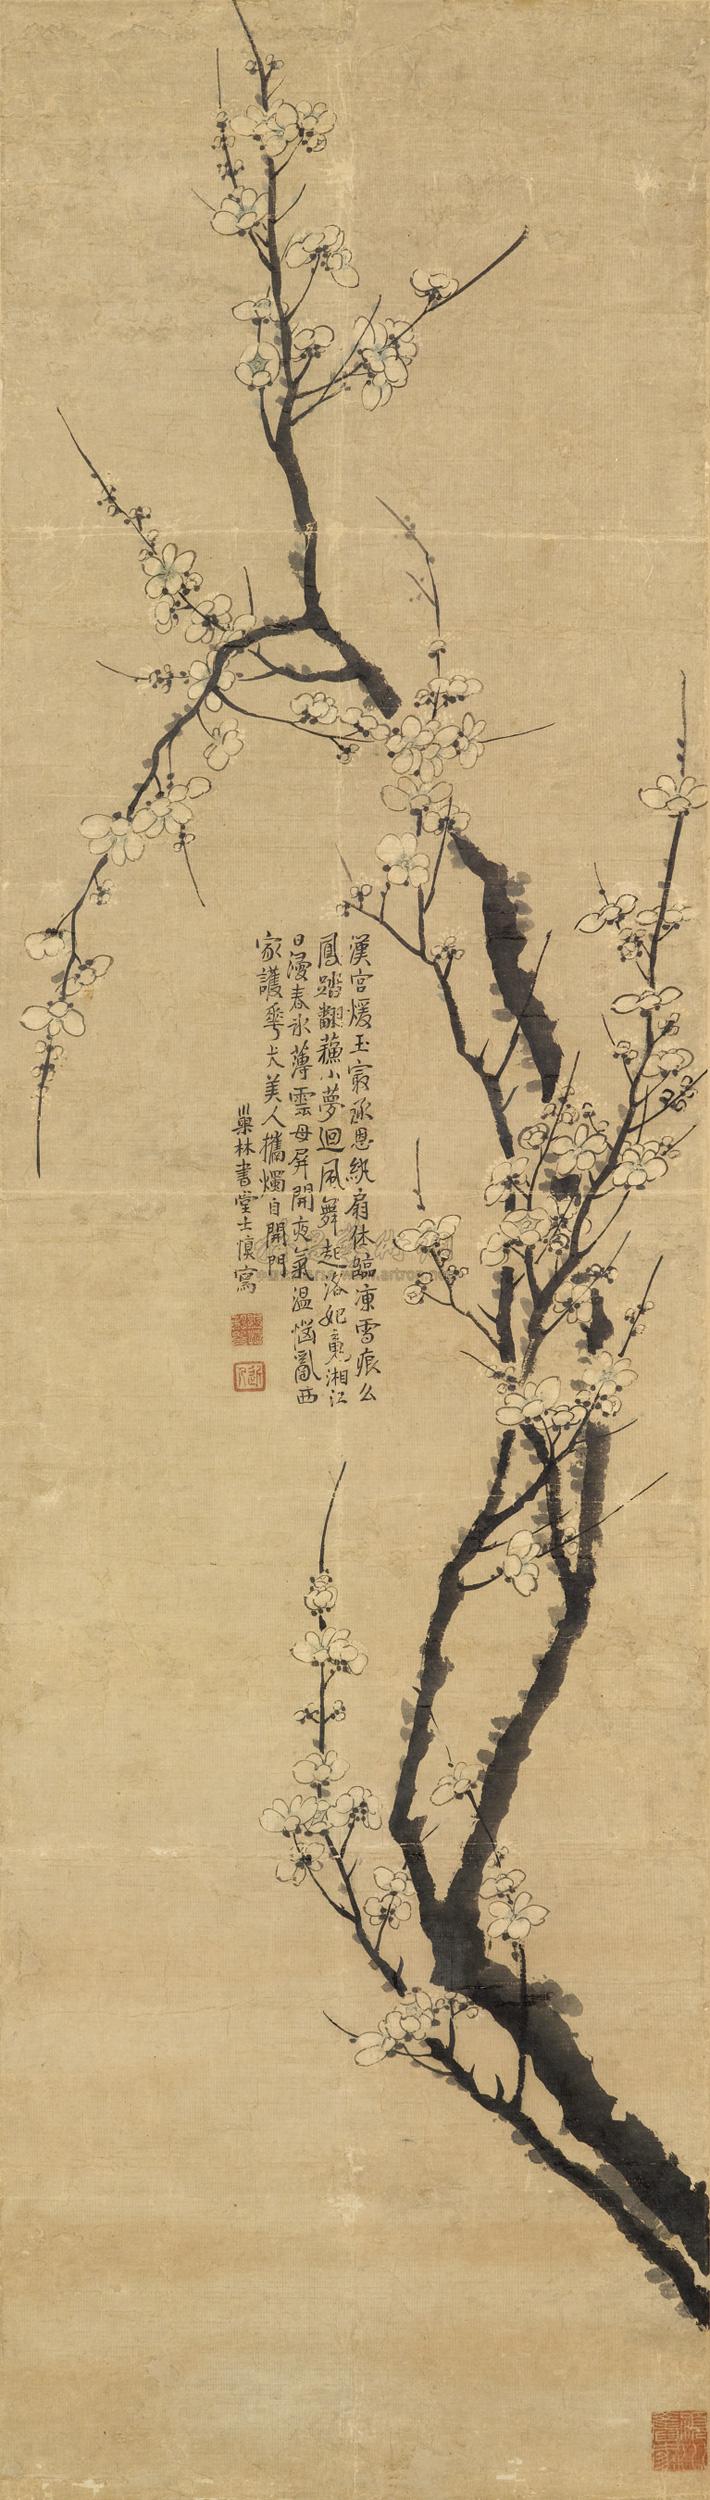 漢宮煖玉寂承恩紈扇休臨凍雪痕么
鳳踏翻蘓小夢迴風舞起洛妃魂湘江
日漫春冰薄雲母屏開夜氣溫惱亂西
家護華犬美人攜燭自開門
巢林書堂士慎寫